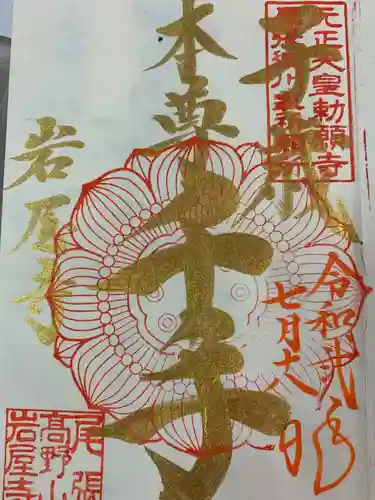 元正天皇勅願寺
令和弐年
七月十八日
本尊千手
岩屋寺
尾張
高野山
岩屋寺